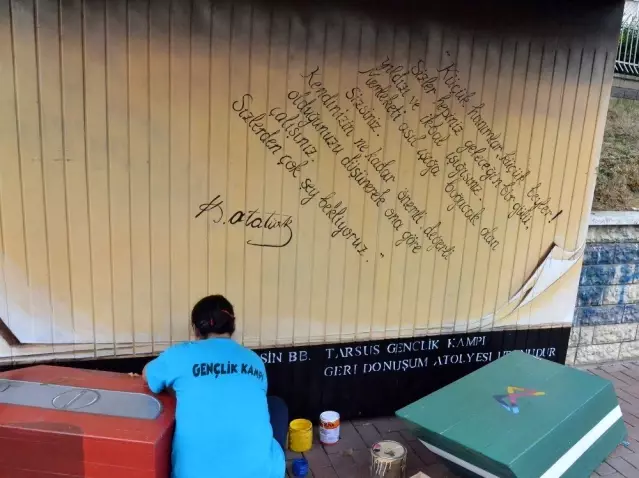 "Küçük hanımlar, küçük beyler!
Sizler hepiniz geleceğin bir gülü,
yıldızı ve ikbal ışığısınız.
Memleketi asıl ışığa boğacak olan
Sizsiniz.
Kendinizin ne kadar önemli, değerli
olduğunuzu düşünerek ona göre
çalışınız.
Sizlerden çok şey bekliyoruz."
K.atatürk
SİN BB. TARSUS GENÇLİK KAMPI
GERİ DÖNÜŞÜM ATOLYESİ
GENÇLİK KAMPI